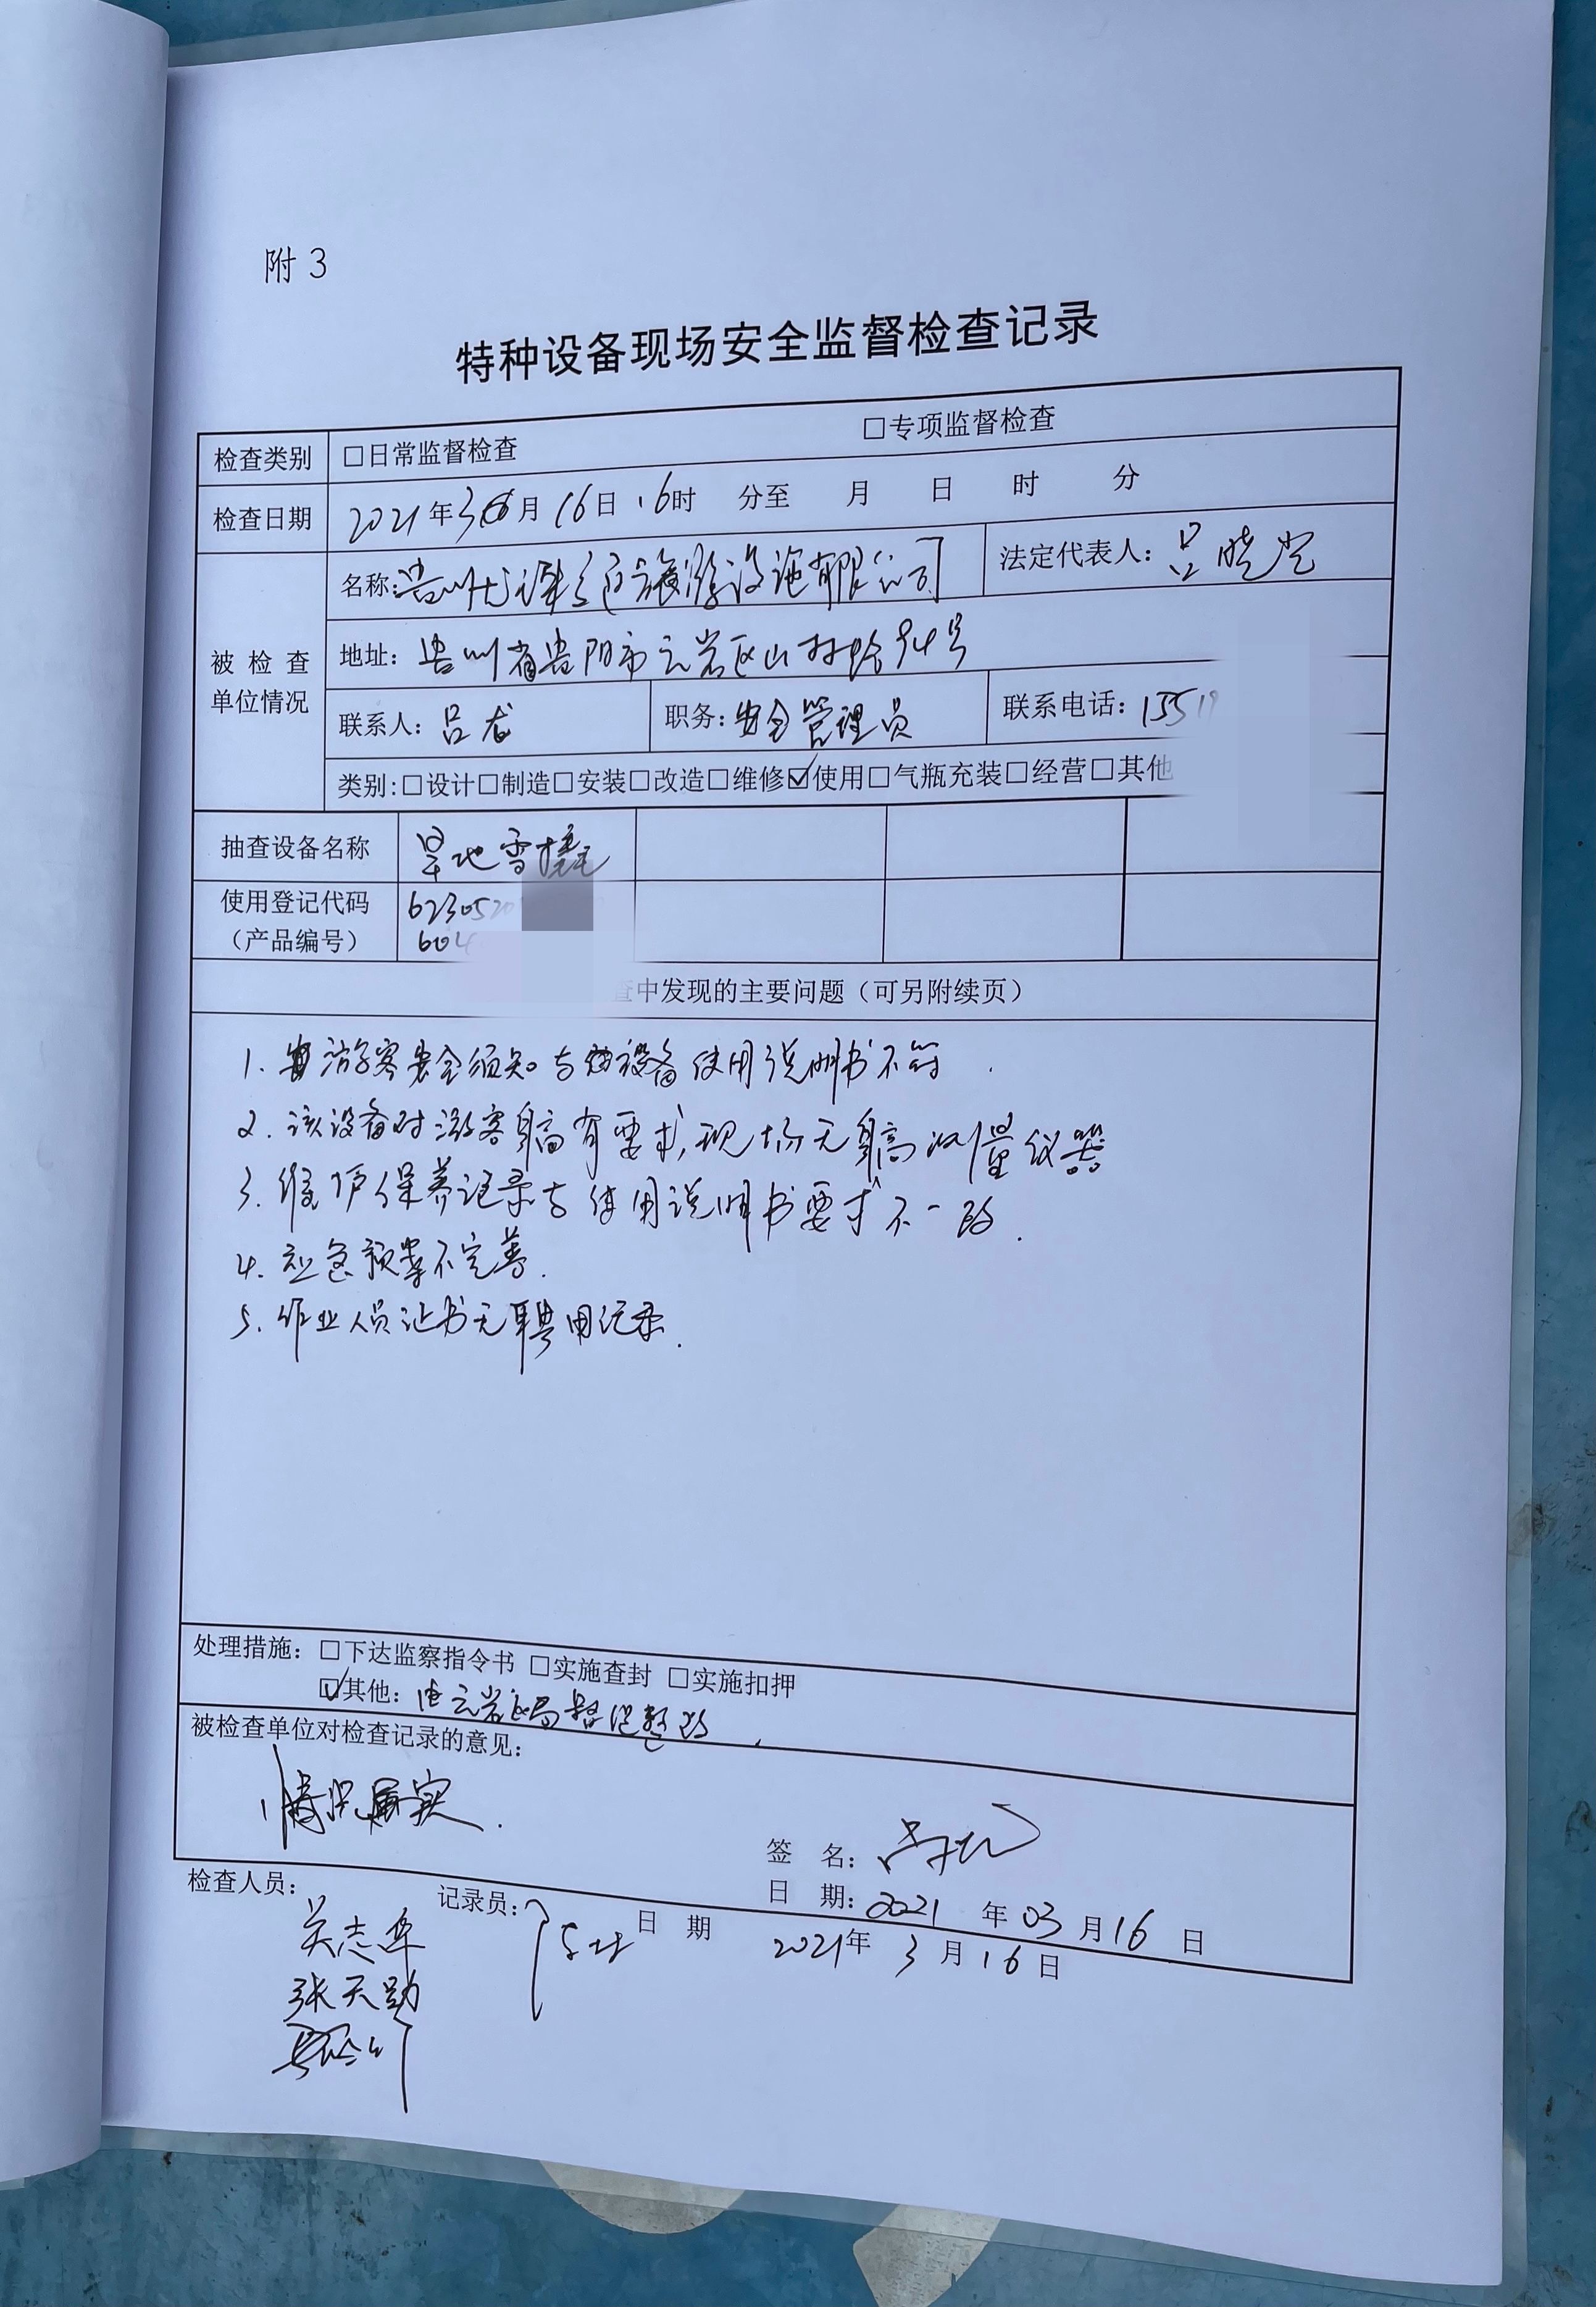 附 3
特种设备现场安全监督检查记录
检查类别 □日常监督检查 □专项监督检查
检查日期 2021年3月16日16时 分至 月 日 时 分
被检查单位情况
名称:贵州 旅游设施有限公司 法定代表人:吕晓
地址:贵州省贵阳市云岩区山林路94号
联系人:吕龙 职务:安全管理员 联系电话:1551
类别:□设计□制造□安装□改造□维修☑使用□气瓶充装□经营□其他
抽查设备名称 旱地雪橇
使用登记代码 (产品编号) 623052 604
查中发现的主要问题(可另附续页)
1. 游客安全须知与设备使用说明书不符.
2. 该设备对游客身高有要求,现场无身高测量仪器
3. 维护保养记录与使用说明书要求不一致.
4. 应急预案不完善.
5. 作业人员证书无聘用记录.
处理措施: □下达监察指令书 □实施查封 □实施扣押
☑其他: 由云岩区局督促整改.
被检查单位对检查记录的意见:
情况属实.
签 名:
日 期: 2021 年 03 月 16 日
检查人员: 记录员: 日 期 2021年 3 月 16 日
张天勋